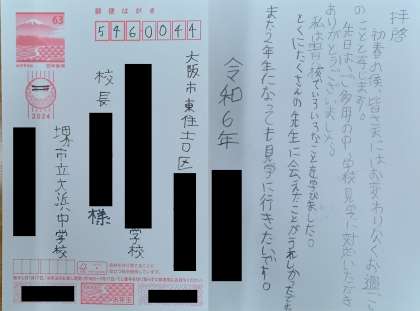 郵便はがき
63
5460044
2024
大阪市東住吉区
学校
校長
様
堺市立大浜中学校
拝啓
初春の候、皆さまにはお変わりなくお過ごし
のことと存じます。
先日はご多用の中、学校見学に対応いただき
ありがとうございました。
私は貴校でいろいろなことを学びました。
とくにたくさんの先生に会えたことがうれしかったです。
また2年生になっても見学に行きたいです。
令和6年